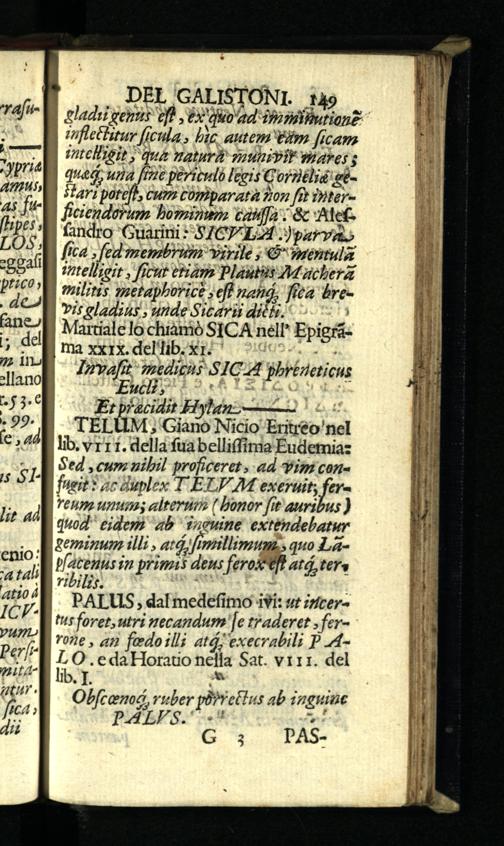 rrasu-
i.
Cypriæ
amus,
as fu-
stipes,
LOS,
eggasi
ptico,
. de
fane
i; del
m in
ellano
r.53.e
. 99.
se, ad
us SI-
lit ad
tenio:
ca tali
latio à
ICV-
vum
Persi-
mita-
ntur.
sica,
dii
DEL GALISTONI. 149
gladii genus est, ex quo ad imminutionẽ
inflectitur sicula, hic autem eam sicam
intelligit, qua natura munivit mares;
quæq; una sine periculo legis Corneliæ ge-
stari potest, cum comparata non sit inter-
ficiendorum hominum caussa. & Ales-
sandro Guarini: SICVLA.) parva
sica, sed membrum virile, & mentulã
intelligit, sicut etiam Plautus Macherã
militis metaphoricè, est nanq; sica bre-
vis gladius, unde Sicarii dicti.
Martiale lo chiamò SICA nell' Epigrã-
ma XXIX. del lib. XI.
Invasit medicus SICA phreneticus
Eucli,
Et præcidit Hylan
TELUM, Giano Nicio Eritreo nel
lib. VIII. della sua bellissima Eudemia:
Sed, cum nihil proficeret, ad vim con-
fugit: ac duplex TELVM exeruit; fer-
reum unum; alterum (honor sit auribus)
quod eidem ab inguine extendebatur
geminum illi, atq; simillimum, quo Lã-
psacenus in primis deus ferox est atq; ter-
ribilis.
PALUS, dal medesimo ivi: ut incer-
tus foret, utri necandum se traderet, fer-
rone, an fœdo illi atq; execrabili PA-
LO. e da Horatio nella Sat. VIII. del
lib. I.
Obscœnoq; ruber porrectus ab inguine
PALVS.
G 3 PAS-